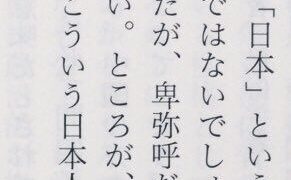 「日本」という
ではないでし
たが、卑弥呼が
い。ところが、
こういう日本